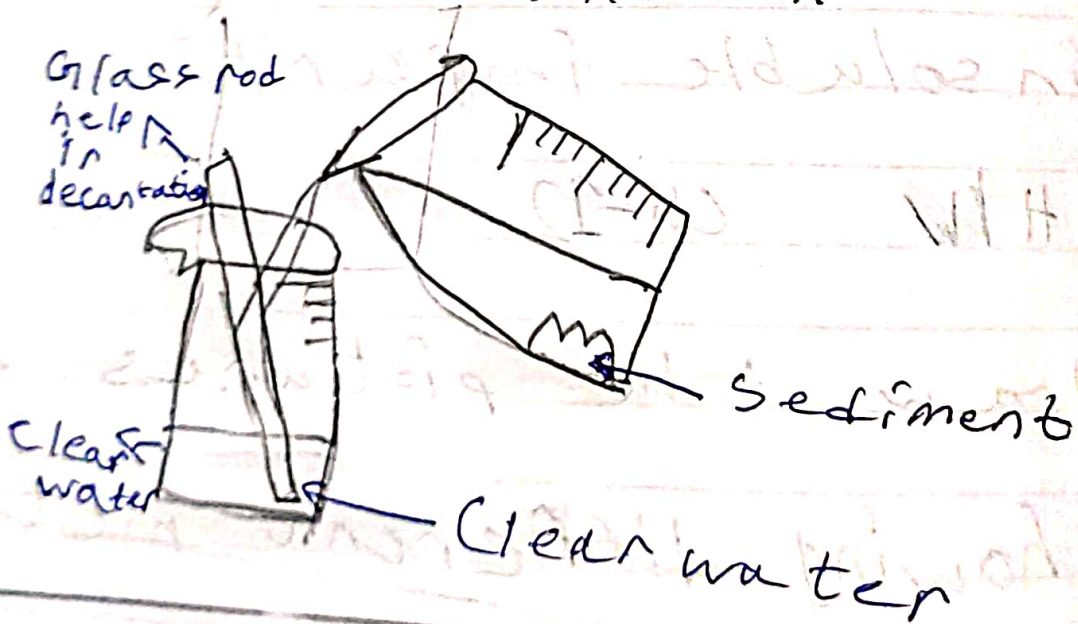 Glass rod
help
in
decantation
Sediment
Clear
water
Clear water